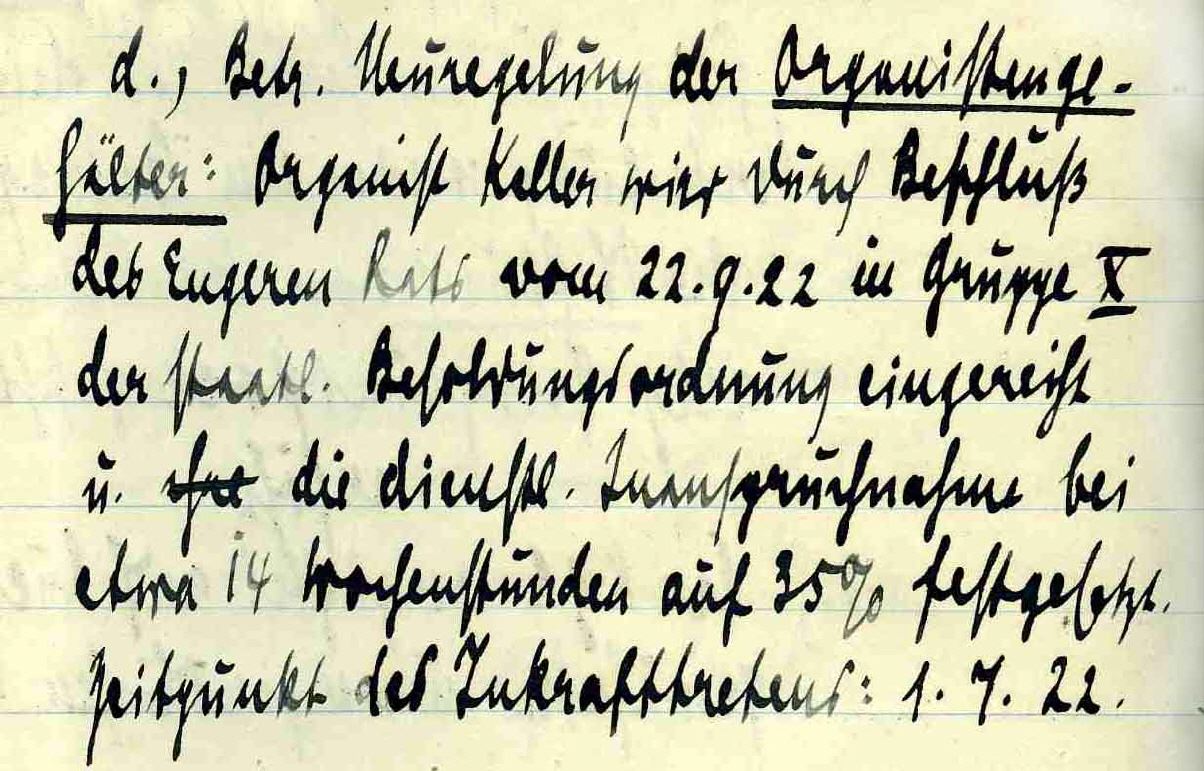 d., Betr. Neuregelung der Organistenge-
hälter: Organist Keller wird durch Beschluß
des Engeren Rats vom 22.9.22 in Gruppe X
der staatl. Besoldungsordnung eingereiht
u. die dienstl. Inanspruchnahme bei
etwa 14 Wochenstunden auf 35% festgesetzt.
Zeitpunkt des Inkrafttretens: 1. 7. 22.